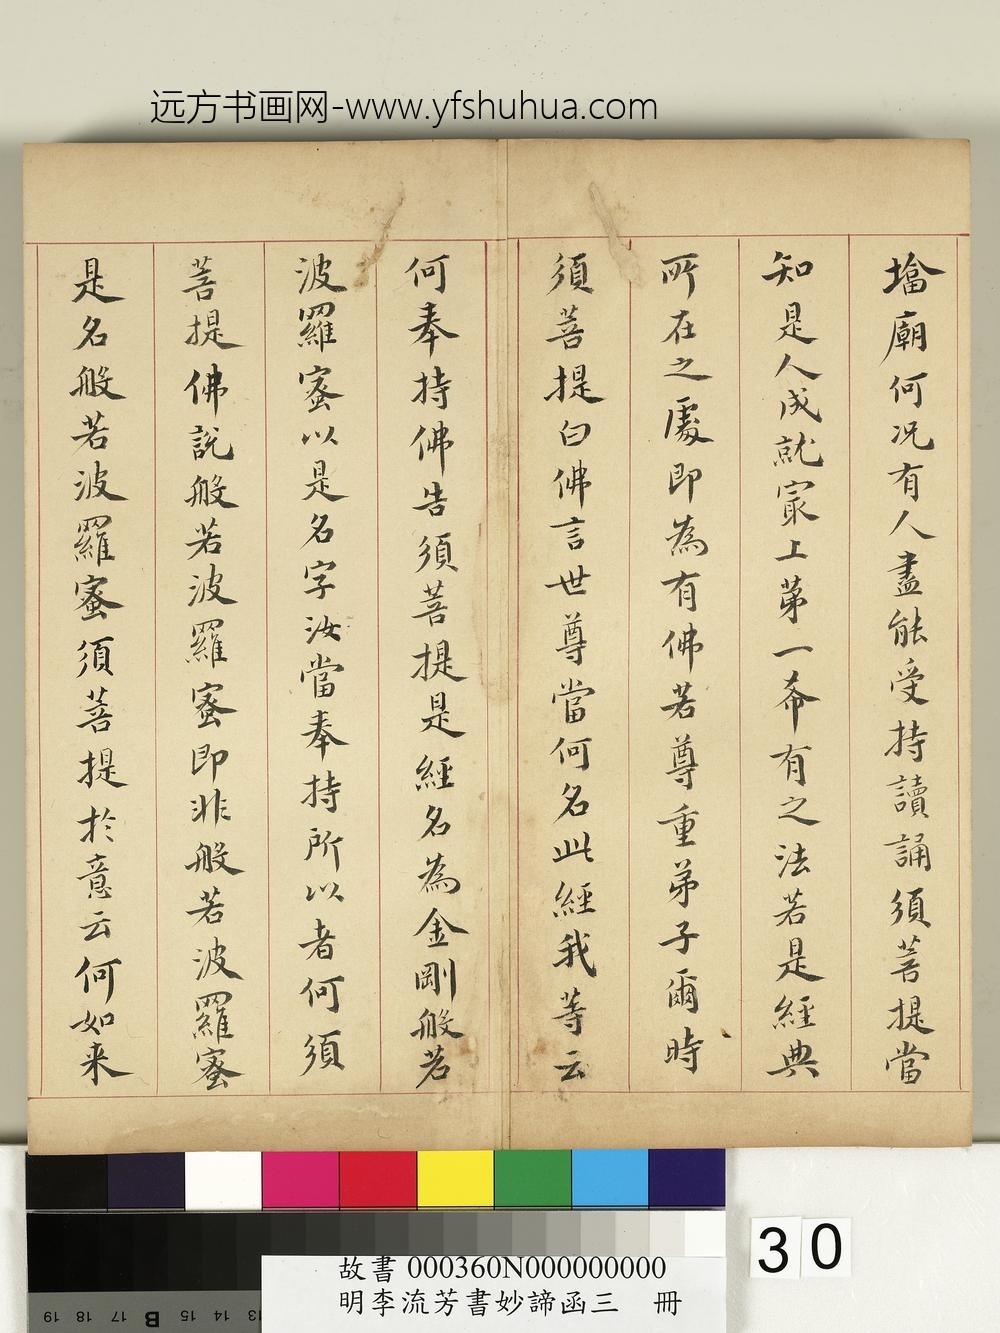 远方书画网-www.yfshuhua.com
墖廟何況有人盡能受持讀誦須菩提當
知是人成就㝡上苐一希有之法若是經典
所在之處即為有佛若尊重弟子爾時
須菩提白佛言世尊當何名此經我等云
何奉持佛告須菩提是經名為金剛般若
波羅蜜以是名字汝當奉持所以者何須
菩提佛說般若波羅蜜即非般若波羅蜜
是名般若波羅蜜須菩提於意云何如来
30
故書 000360N000000000
明李流芳書妙諦函三 冊
19 18 17 B 15 14 13